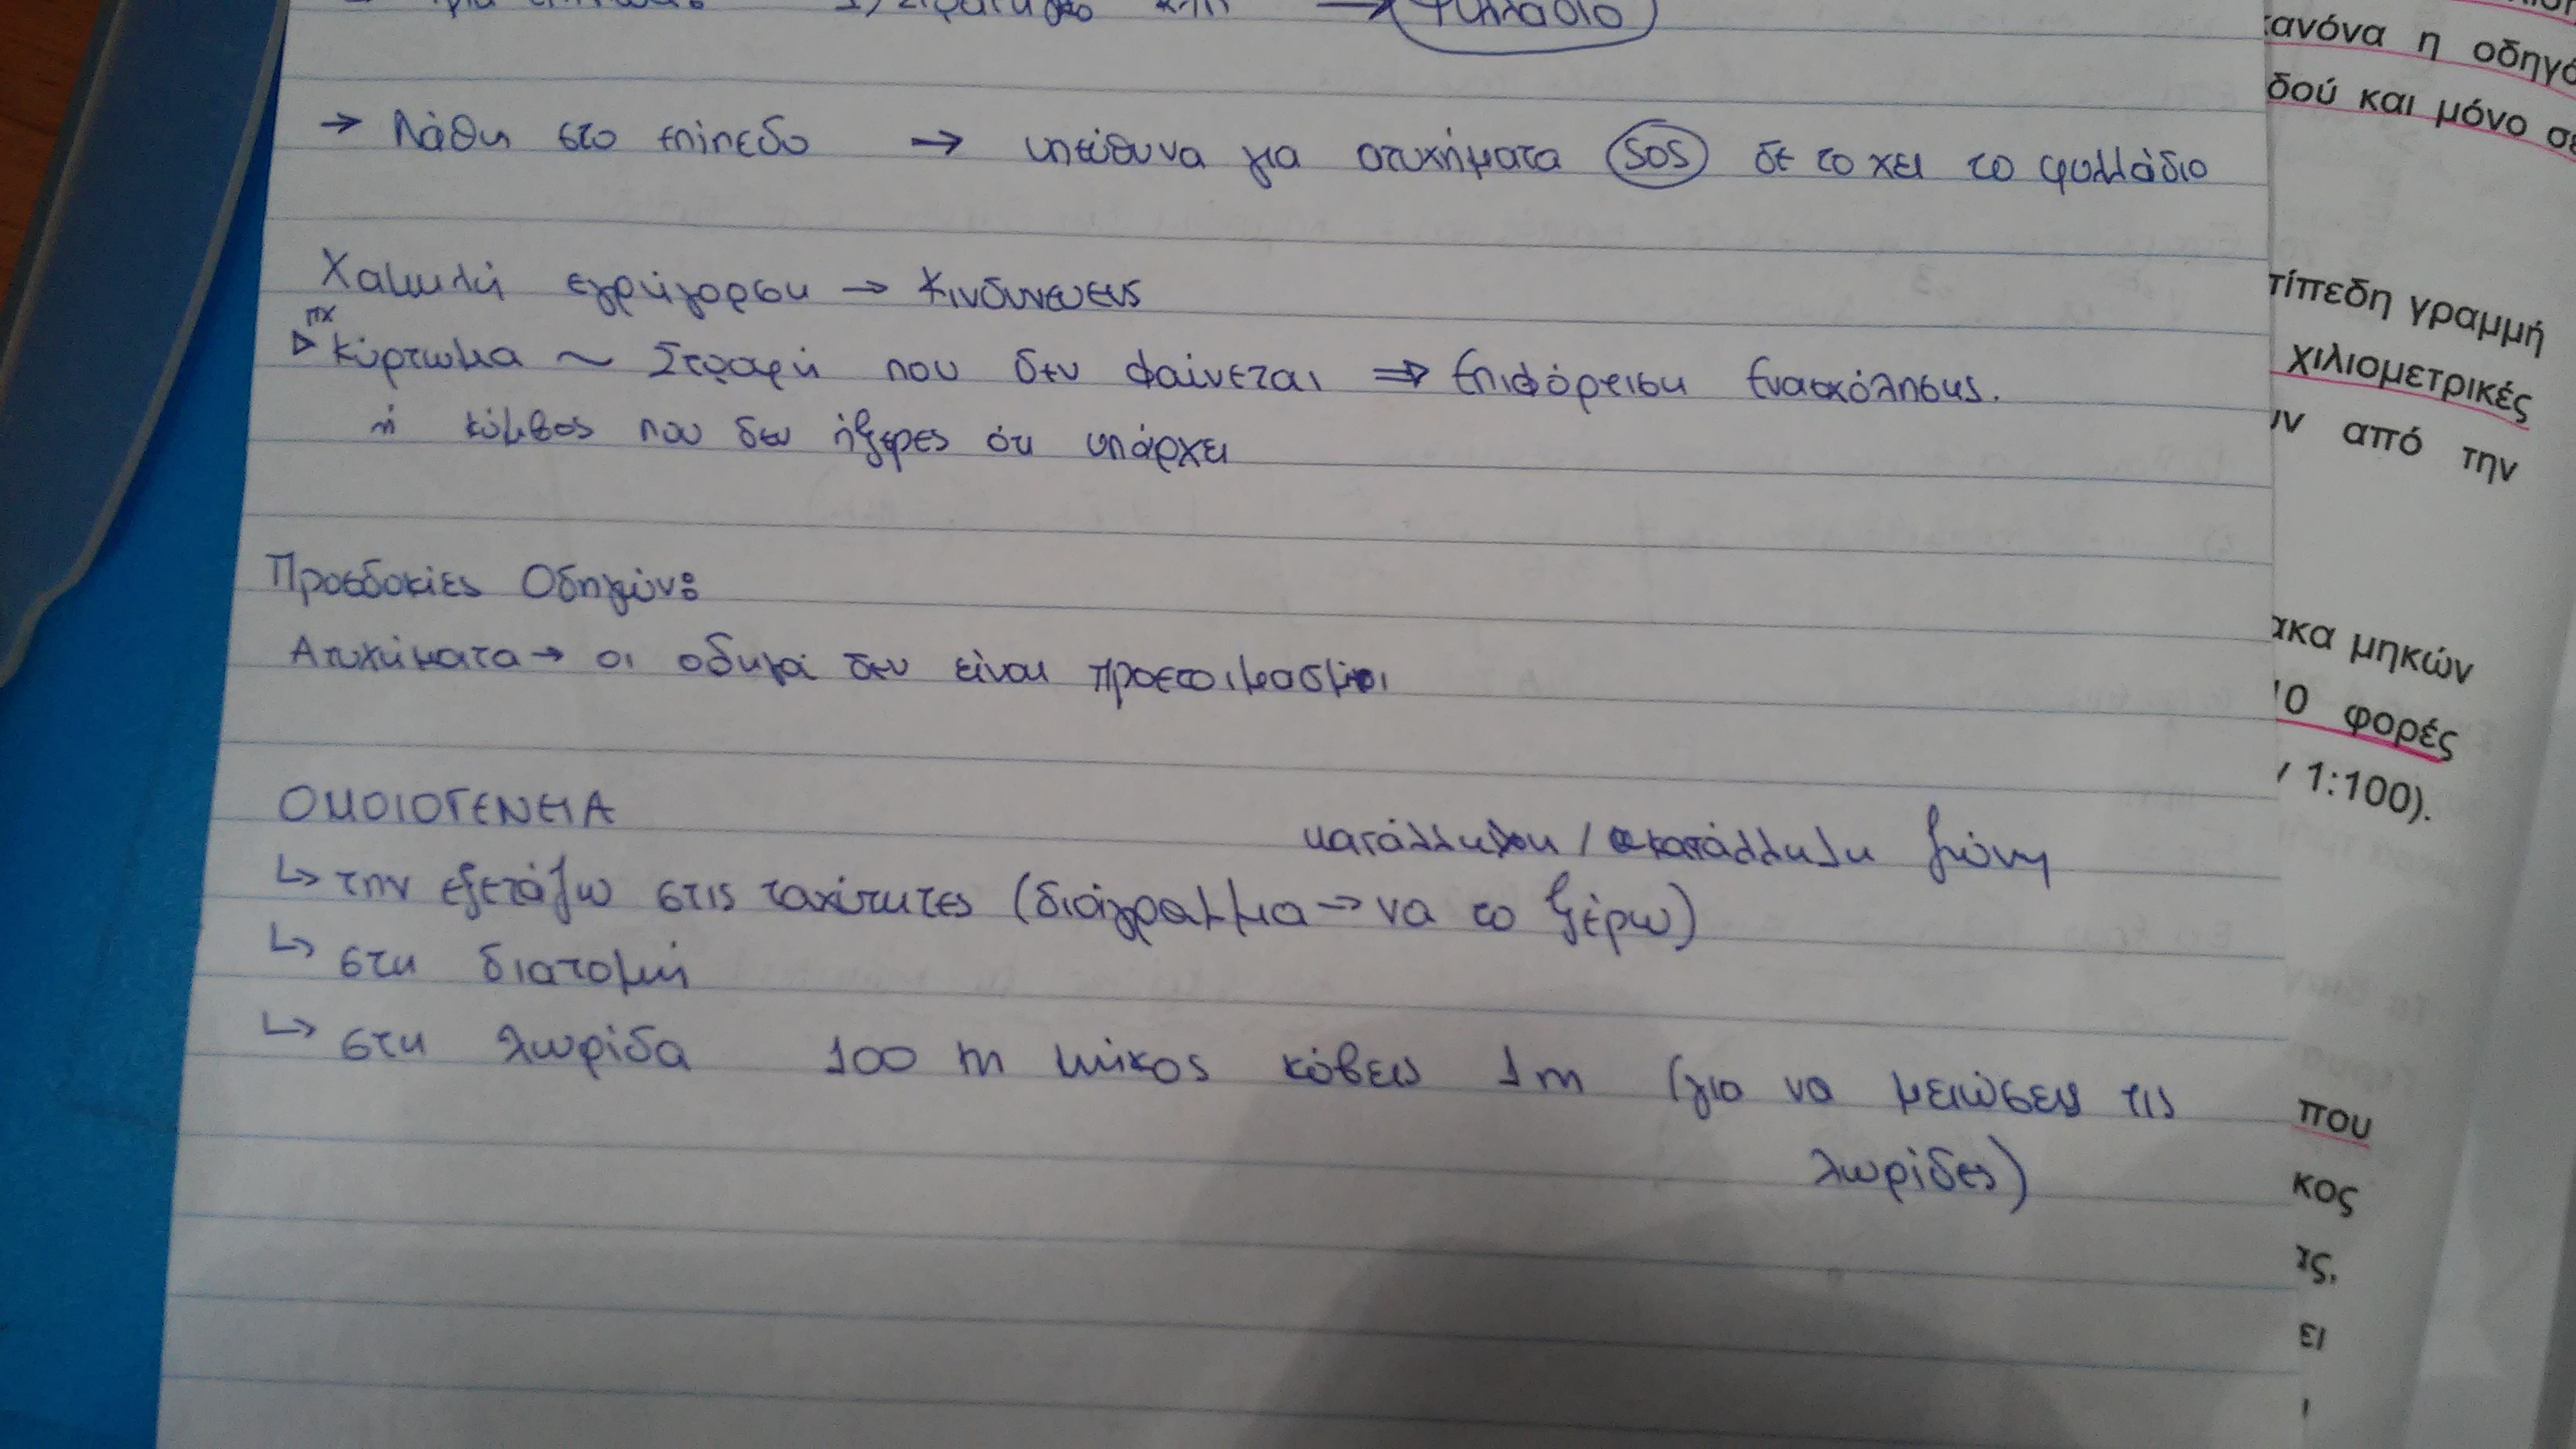 → φυλλάδιο
→ Λάθη στο επίπεδο → υπεύθυνα για ατυχήματα SOS δε το χει το φυλλάδιο
Χαμηλή εγρήγορση → κινδυνεύεις
πχ
▷ κύρτωμα ~ Στροφή που δεν φαίνεται ⇒ Επιφόρτιση Ενασχόλησης.
ή κόμβος που δεν ήξερες ότι υπάρχει
Προσδοκίες Οδηγών:
Ατυχήματα → οι οδηγοί δεν είναι προετοιμασμένοι
ΟΜΟΙΟΓΕΝΕΙΑ
κατάλληλη / ακατάλληλη ζώνη
↳ την εξετάζω στις ταχύτητες (διάγραμμα → να το ξέρω)
↳ στη διατομή
↳ στη λωρίδα 100 m μήκος κόβεις 1m (για να μειώσεις τις
λωρίδες)
κανόνα η οδηγό
δού και μόνο σε
τίπεδη γραμμή
χιλιομετρικές
υν από την
ακα μηκών
10 φορές
1:100).
που
κος
ις,
ει